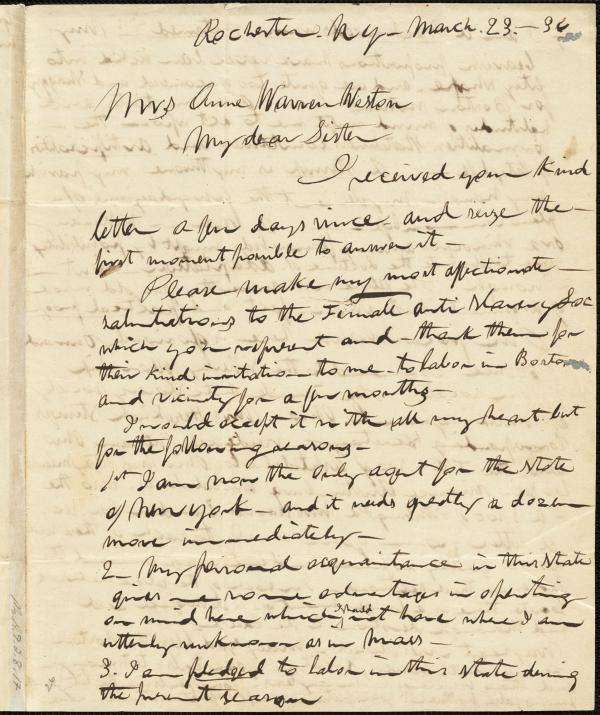 Rochester. N Y - March. 23. - 36
Mrs Anne Warren Weston
My dear Sister
I received your kind
letter a few days since and seize the -
first moment possible to answer it -
Please make my most affectionate -
salutations to the Female anti Slavery Soc
which you represent and - thank them for
their kind invitation to me - to labor in Boston
and vicinity for a few months -
I would accept it with all my heart but
for the following reasons -
1st I am now the only agent for the State
of New York - and it needs greatly a dozen
more immediately -
2 - My personal acquaintance in this State
gives me some advantages in operating
on mind here which I should not have where I am
utterly unknown as in Mass -
3. I am pledged to labor in this State during
the present season
26